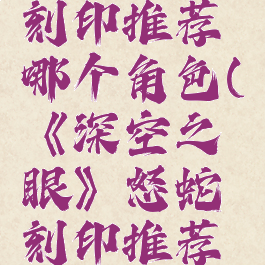 刻印推荐
哪个角色(
《深空之
眼》怒蛇
刻印推荐